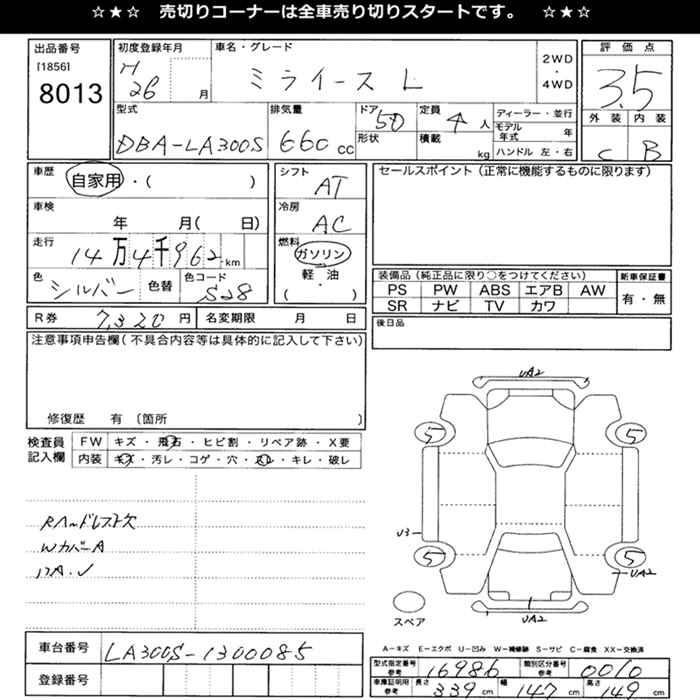 ☆★☆ 売切りコーナーは全車売り切りスタートです。 ☆★☆
出品番号
[1856]
8013
初度登録年月
H
26 月
車名・グレード
ミライース L
2WD
・
4WD
評価点
3.5
外装 内装
C B
型式
DBA-LA300S
排気量
660 cc
ドア
5D
形状
定員
4 人
積載
kg
ディーラー・並行
モデル年式 年
ハンドル 左・右
車歴
自家用・( )
車検
年 月( 日)
走行
14万4千962km
色
シルバー 色替
色コード
S28
シフト
AT
冷房
AC
燃料
ガソリン
軽・油
( ・ )
セールスポイント(正常に機能するものに限ります)
装備品(純正品に限り○をつけてください)
PS PW ABS エアB AW
SR ナビ TV カワ
新車保証書
有・無
R券 7,320 円 名変期限 月 日
後日品
注意事項申告欄(不具合内容等は具体的に記入して下さい)
修復歴 有 〔箇所 〕
検査員
記入欄
FW キズ・飛石・ヒビ割・リペア跡・X要
内装 キズ・汚レ・コゲ・穴・スレ・キレ・破レ
Rヘッドレスト欠
WカバーA
UA2
5 5
U3
5 5
UA2
UA2
スペア
A=キズ E=エクボ U=凹み W=補修跡 S=サビ C=腐食 XX=交換済
車台番号 LA300S-1300085
登録番号
型式指定番号
参考
16986
類別区分番号
参考
0010
車庫証明用
参考
長さ 339 cm 幅 147 cm 高さ 149 cm